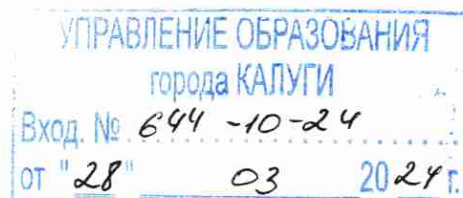 УПРАВЛЕНИЕ ОБРАЗОВАНИЯ
города КАЛУГИ
Вход. № 644-10-24
от "28" 03 2024 г.